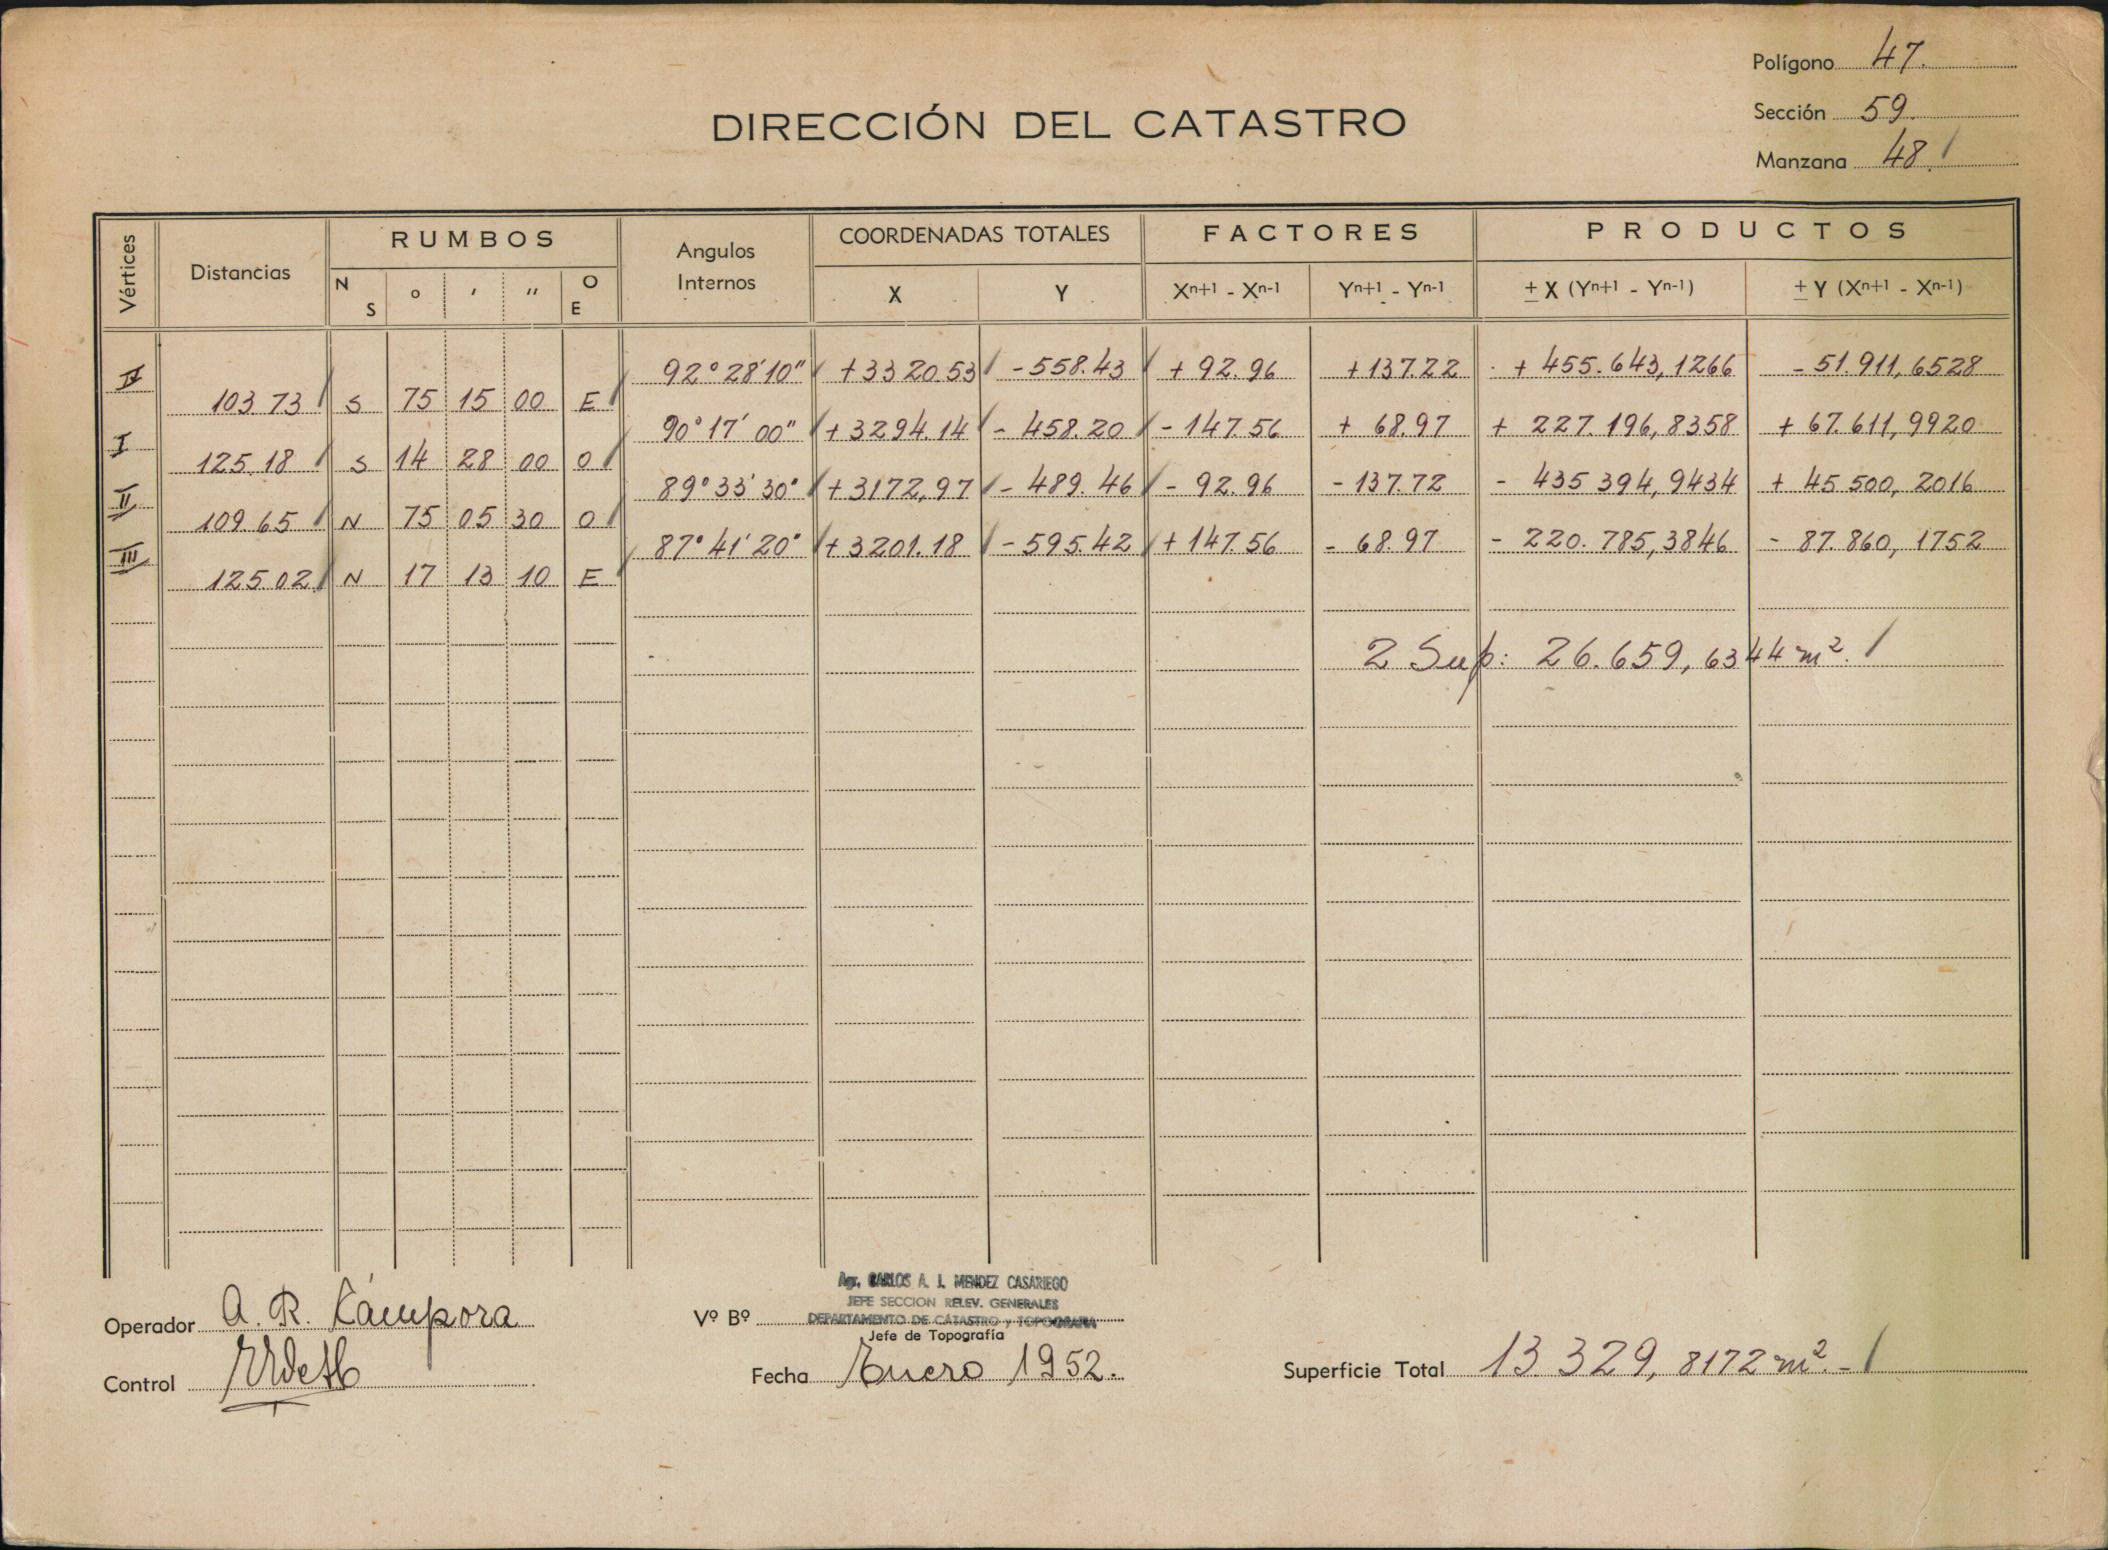 Polígono 47.
Sección 59.
Manzana 48.
DIRECCIÓN DEL CATASTRO
Vértices Distancias RUMBOS Angulos Internos COORDENADAS TOTALES FACTORES PRODUCTOS
N S ° ' " O E X Y Xn+1 - Xn-1 Yn+1 - Yn-1 ± X (Yn+1 - Yn-1) ± Y (Xn+1 - Xn-1)
IV 92°28'10" +3320.53 -558.43 +92.96 +137.22 +455.643,1266 -51.911,6528
103.73 S 75 15 00 E
I 90°17'00" +3294.14 -458.20 -147.56 +68.97 +227.196,8358 +67.611,9920
125.18 S 14 28 00 O
II 89°33'30" +3172,97 -489.46 -92.96 -137.22 -435 394,9434 +45.500,2016
109.65 N 75 05 30 O
III 87°41'20" +3201.18 -595.42 +147.56 -68.97 -220.785,3846 -87.860,1752
125.02 N 17 13 10 E
2 Sup: 26.659,6344 m².
Agr. CARLOS A. J. MENDEZ CASARIEGO
JEFE SECCION RELEV. GENERALES
DEPARTAMENTO DE CATASTRO y TOPOGRAFIA
Operador A. R. Cámpora Vº Bº
Jefe de Topografía
Control
Fecha Enero 1952.
Superficie Total 13.329,8172 m².-